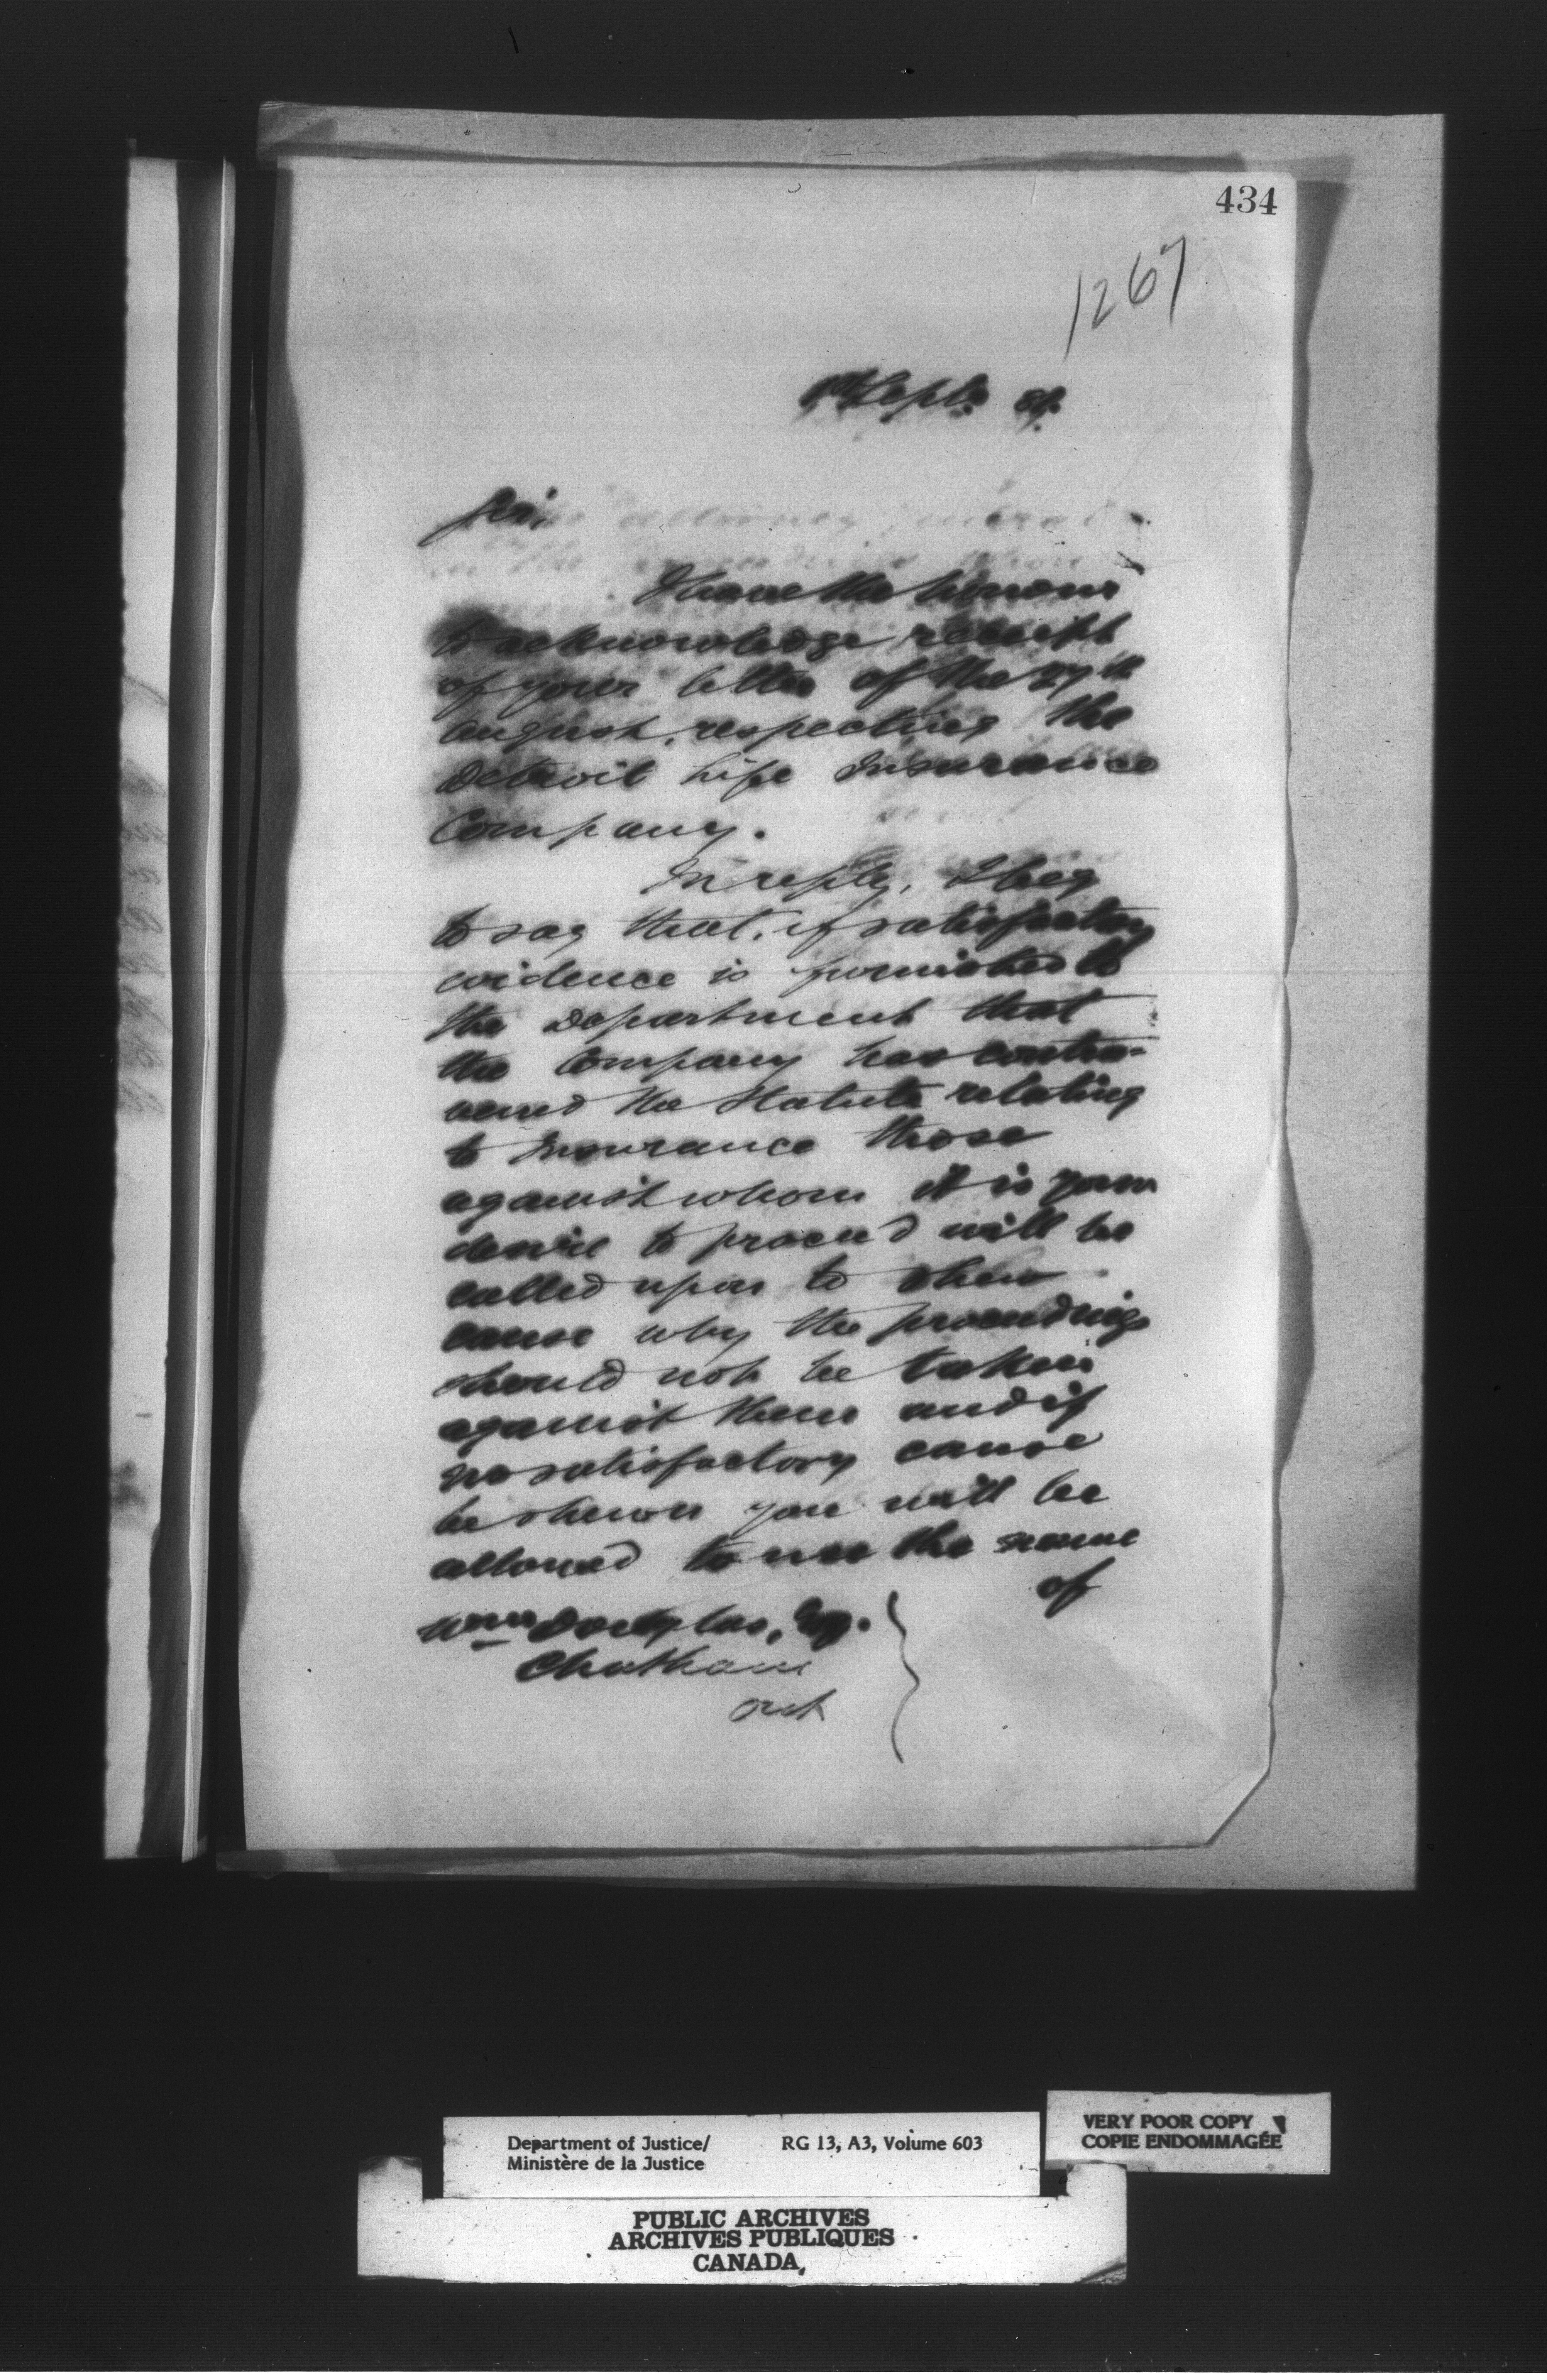 434
1267
Sept.
Sir,
I have the honour
to acknowledge receipt
of your letter of the 27th
August, respecting the
Detroit Life Insurance
Company.
In reply, I beg
to say that, if satisfactory
evidence is furnished to
the Department that
the Company has contra-
vened the Statute relating
to Insurance those
against whom it is your
desire to proceed will be
called upon to shew
cause why the proceedings
should not be taken
against them and if
no satisfactory cause
be shewn you will be
allowed to use the name
of
Wm Douglas, Esq.
Chatham
Ont
Department of Justice/ RG 13, A3, Volume 603
Ministère de la Justice
VERY POOR COPY
COPIE ENDOMMAGÉE
PUBLIC ARCHIVES
ARCHIVES PUBLIQUES
CANADA